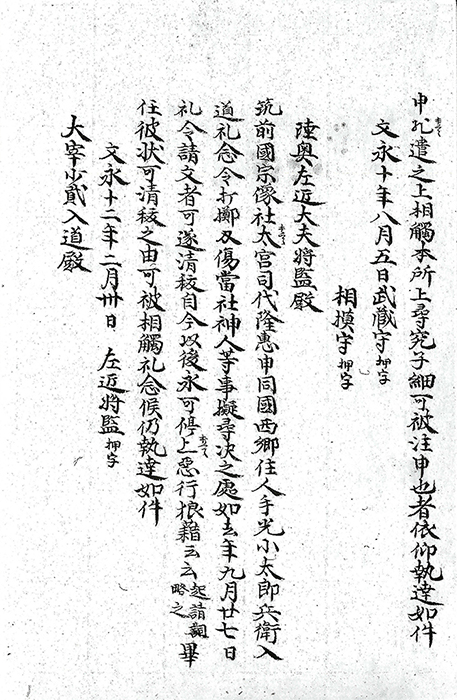 申札遣之上相觸本所上尋究子細可被注申也者依仰執達如件
文永十年八月五日武藏守押字
相摸守押字
陸奥左近大夫將監殿
筑前國宗像社大宮司代隆惠申同國西郷住人手光小太郎兵衛入
道礼念令打擲刃傷當社神人等事擬尋决之處如去年九月廿七日
礼念請文者可遂清祓自今以後永可停止惡行狼藉云々起請詞略之畢
任彼狀可清祓之由可被相觸礼念候仍執達如件
文永十二年二月卅日 左近將監押字
大宰少貳入道殿